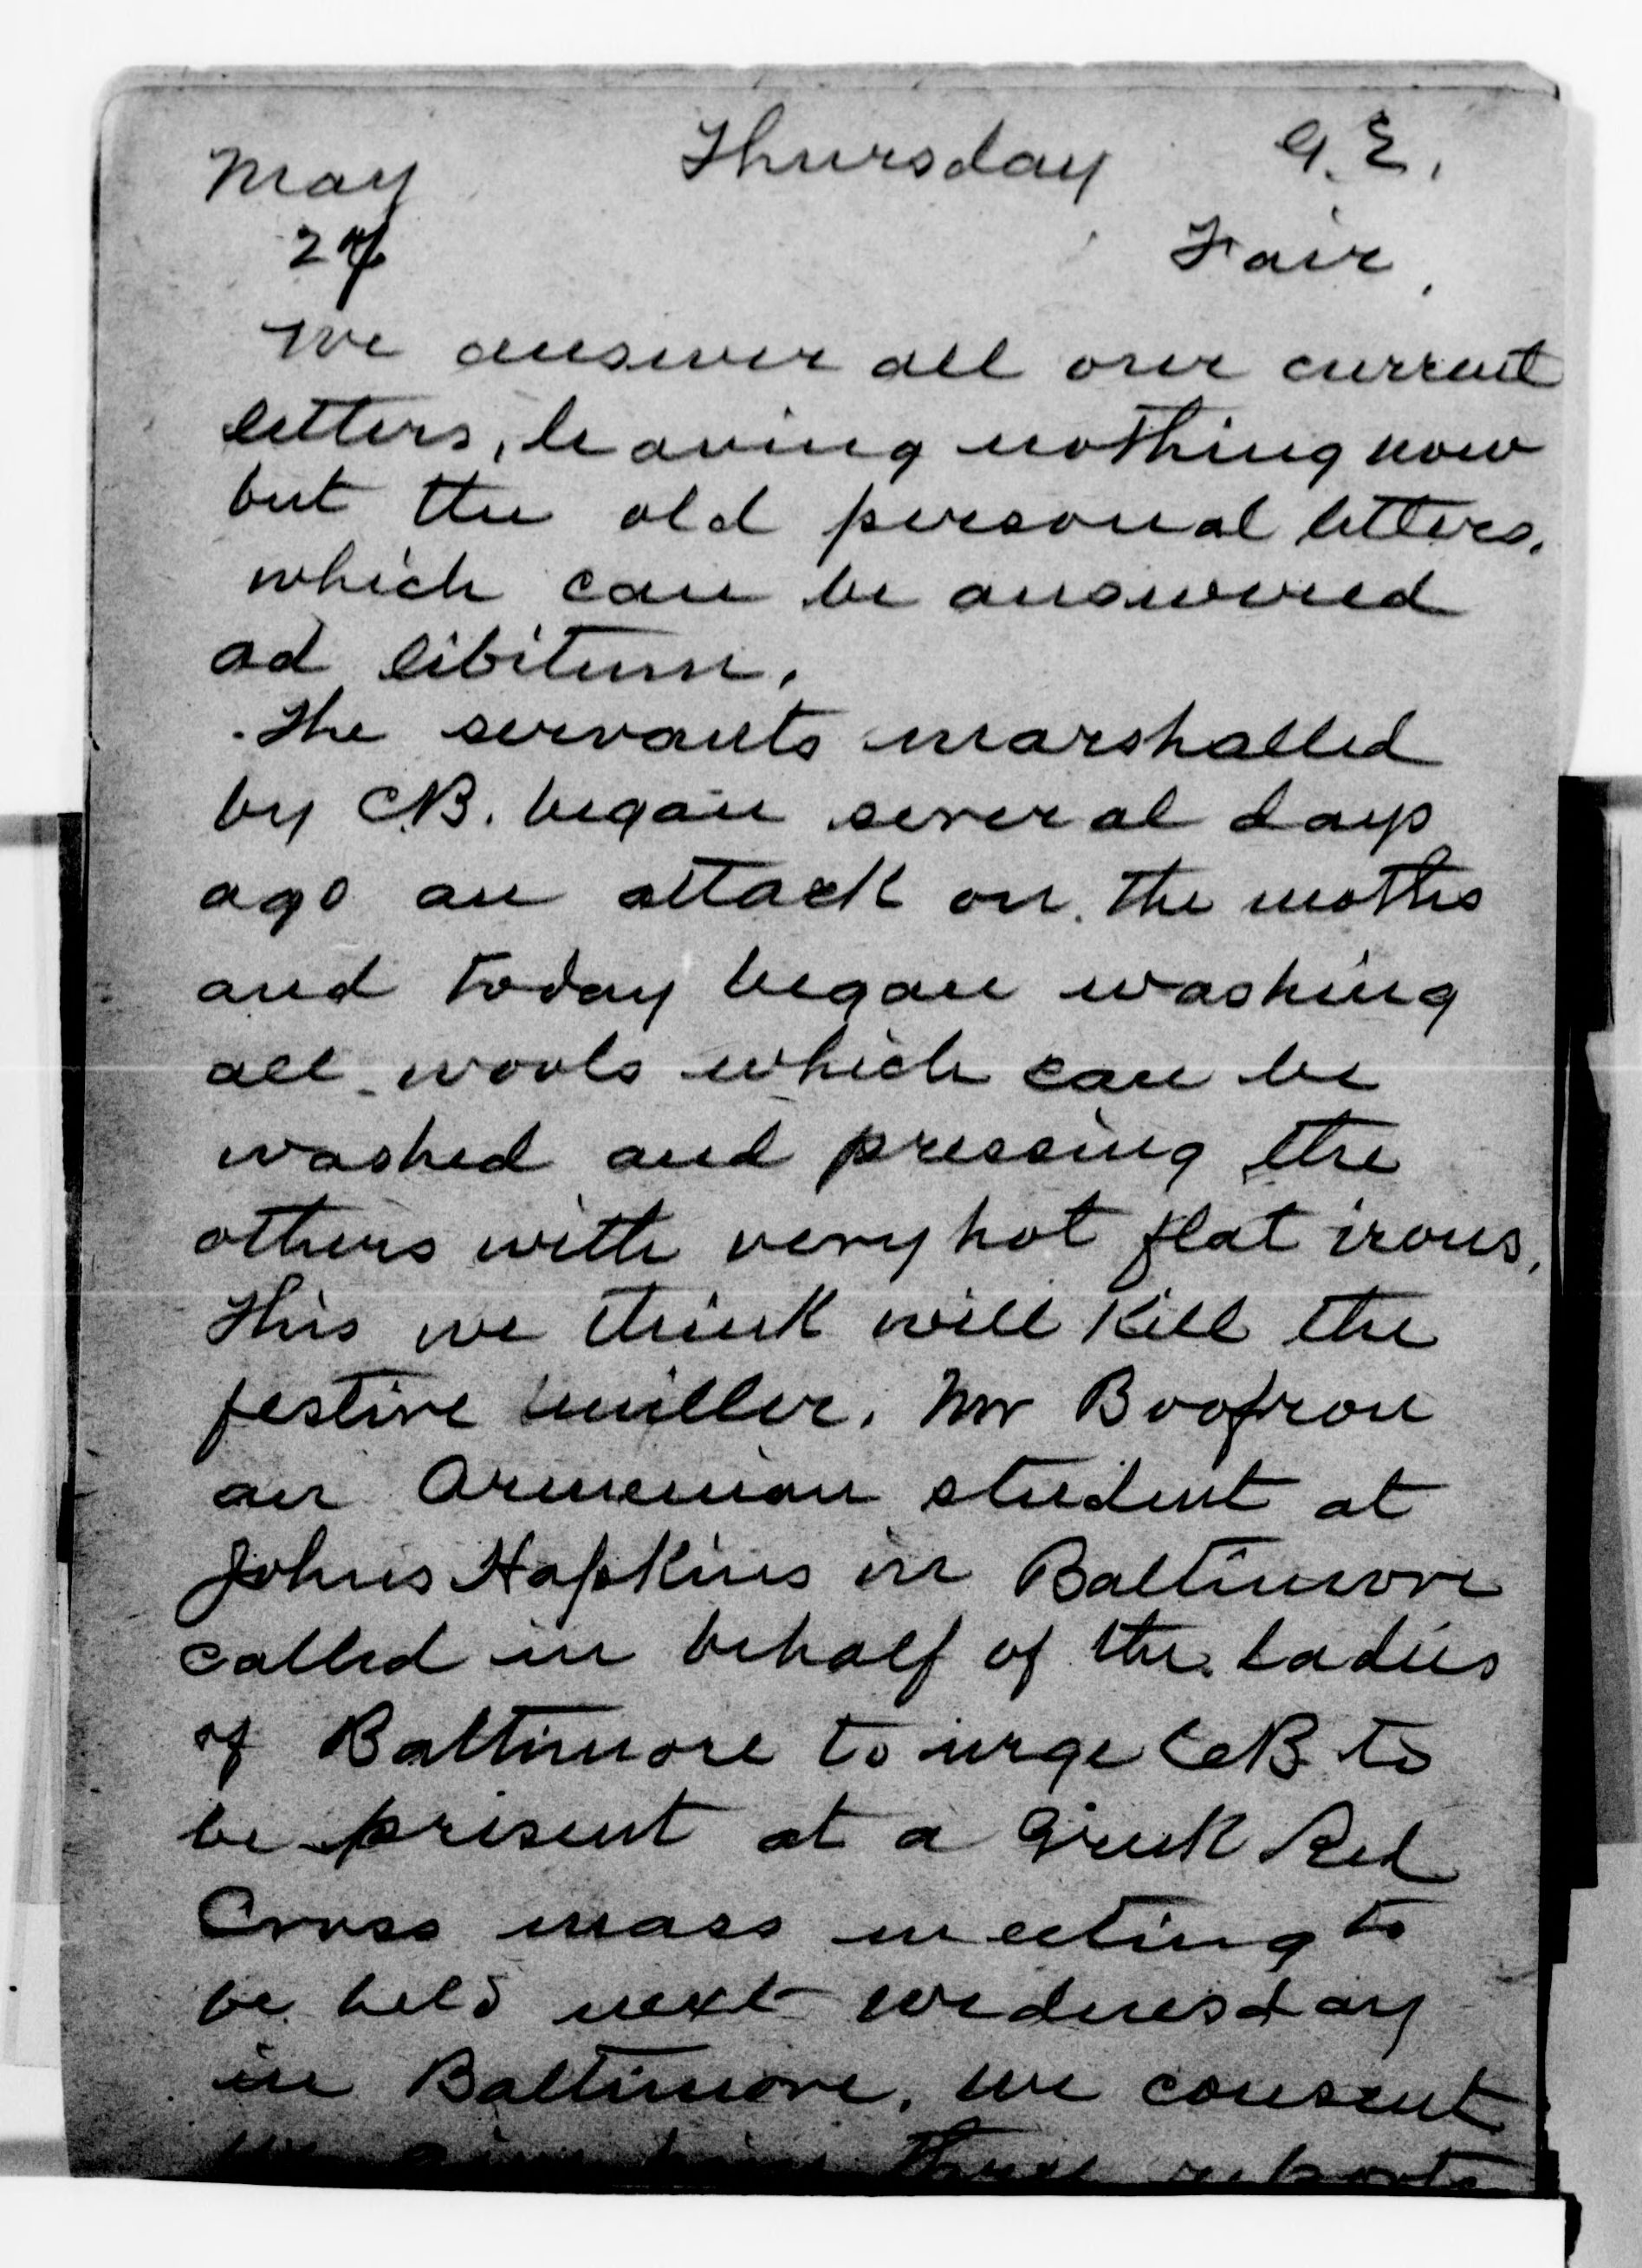 May Thursday G.E.
27 Fair,
We answer all our current
letters, leaving nothing now
but the old personal letters,
which can be answered
ad libitum.
The servants marshalled
by CB. began several days
ago an attack on the moths
and today began washing
all wools which can be
washed and pressing the
others with very hot flat irons,
This we think will kill the
festive miller. Mr
an Armenian student at
Johns Hopkins in Baltimore
called in behalf of the Ladies
of Baltimore to urge CB to
be present at a Greek Red
Cross mass meeting to
be held next wednesday
in Baltimore, we consent
We give him three reports